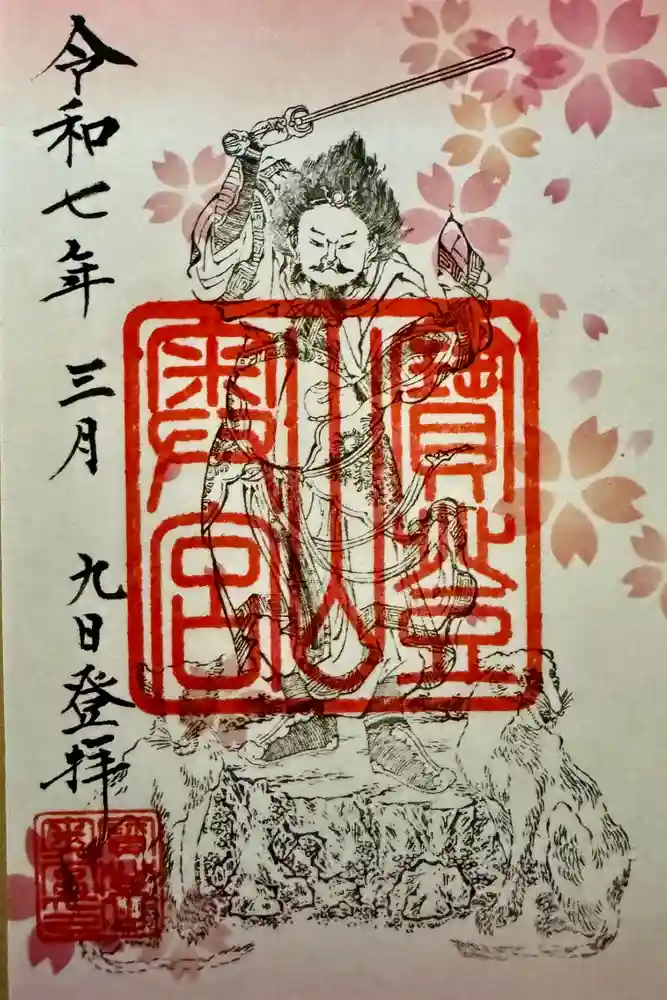 寶登
山
奥宮
令和七年 三月 九日登拝